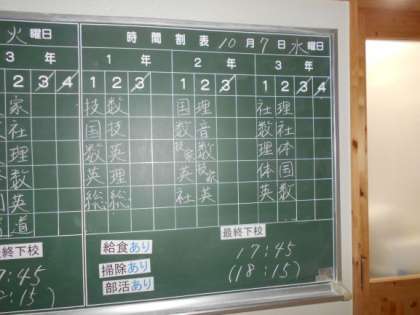 火 曜日
時間割表 10月7日水曜日
3 年
1 年 2 年 3 年
2 3 4
1 2 3 1 2 3 1 2 3 4
家 技 数 国 理 社 理
社 国 技 数 音 数 社
理 数 英 技家 数 理 体
数 英 理 英 技家 体 国
英 総 総 社 英 英 数
道
最終下校 給食あり 最終下校
7:45 掃除あり 17:45
:15) 部活あり (18:15)